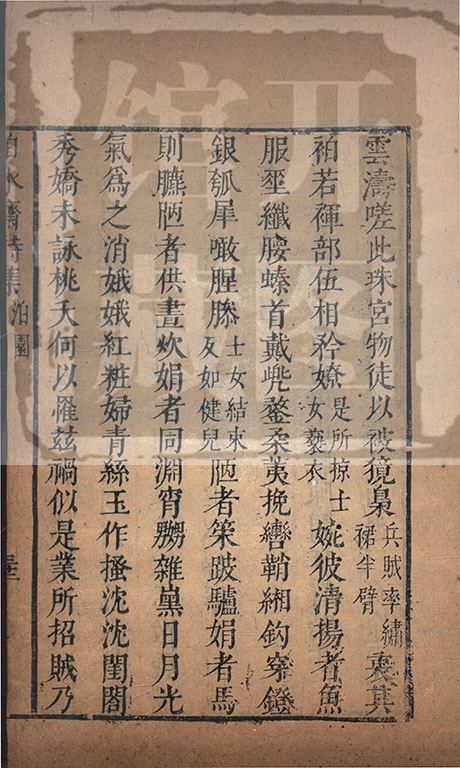 雲濤嗟此珠宮物徒以被獍梟兵賊率繡裙半臂裹其
袙若褌部伍相矜嫽是所掠士女褻衣婉彼清揚者魚
服坙纖腰螓首戴兠鍪柔荑挽轡鞘緗鈎穿鐙
銀瓠犀噉腥縢士女結束反如健兒陋者策跛驢娟者馬
則臕陋者供晝炊娟者同淵宵嬲雜黨日月光
氣爲之消娥娥紅粧婦青絲玉作搔沈沈閨閤
秀嬌未詠桃夭何以罹茲禍似是業所招賊乃
水齋詩集 泊園